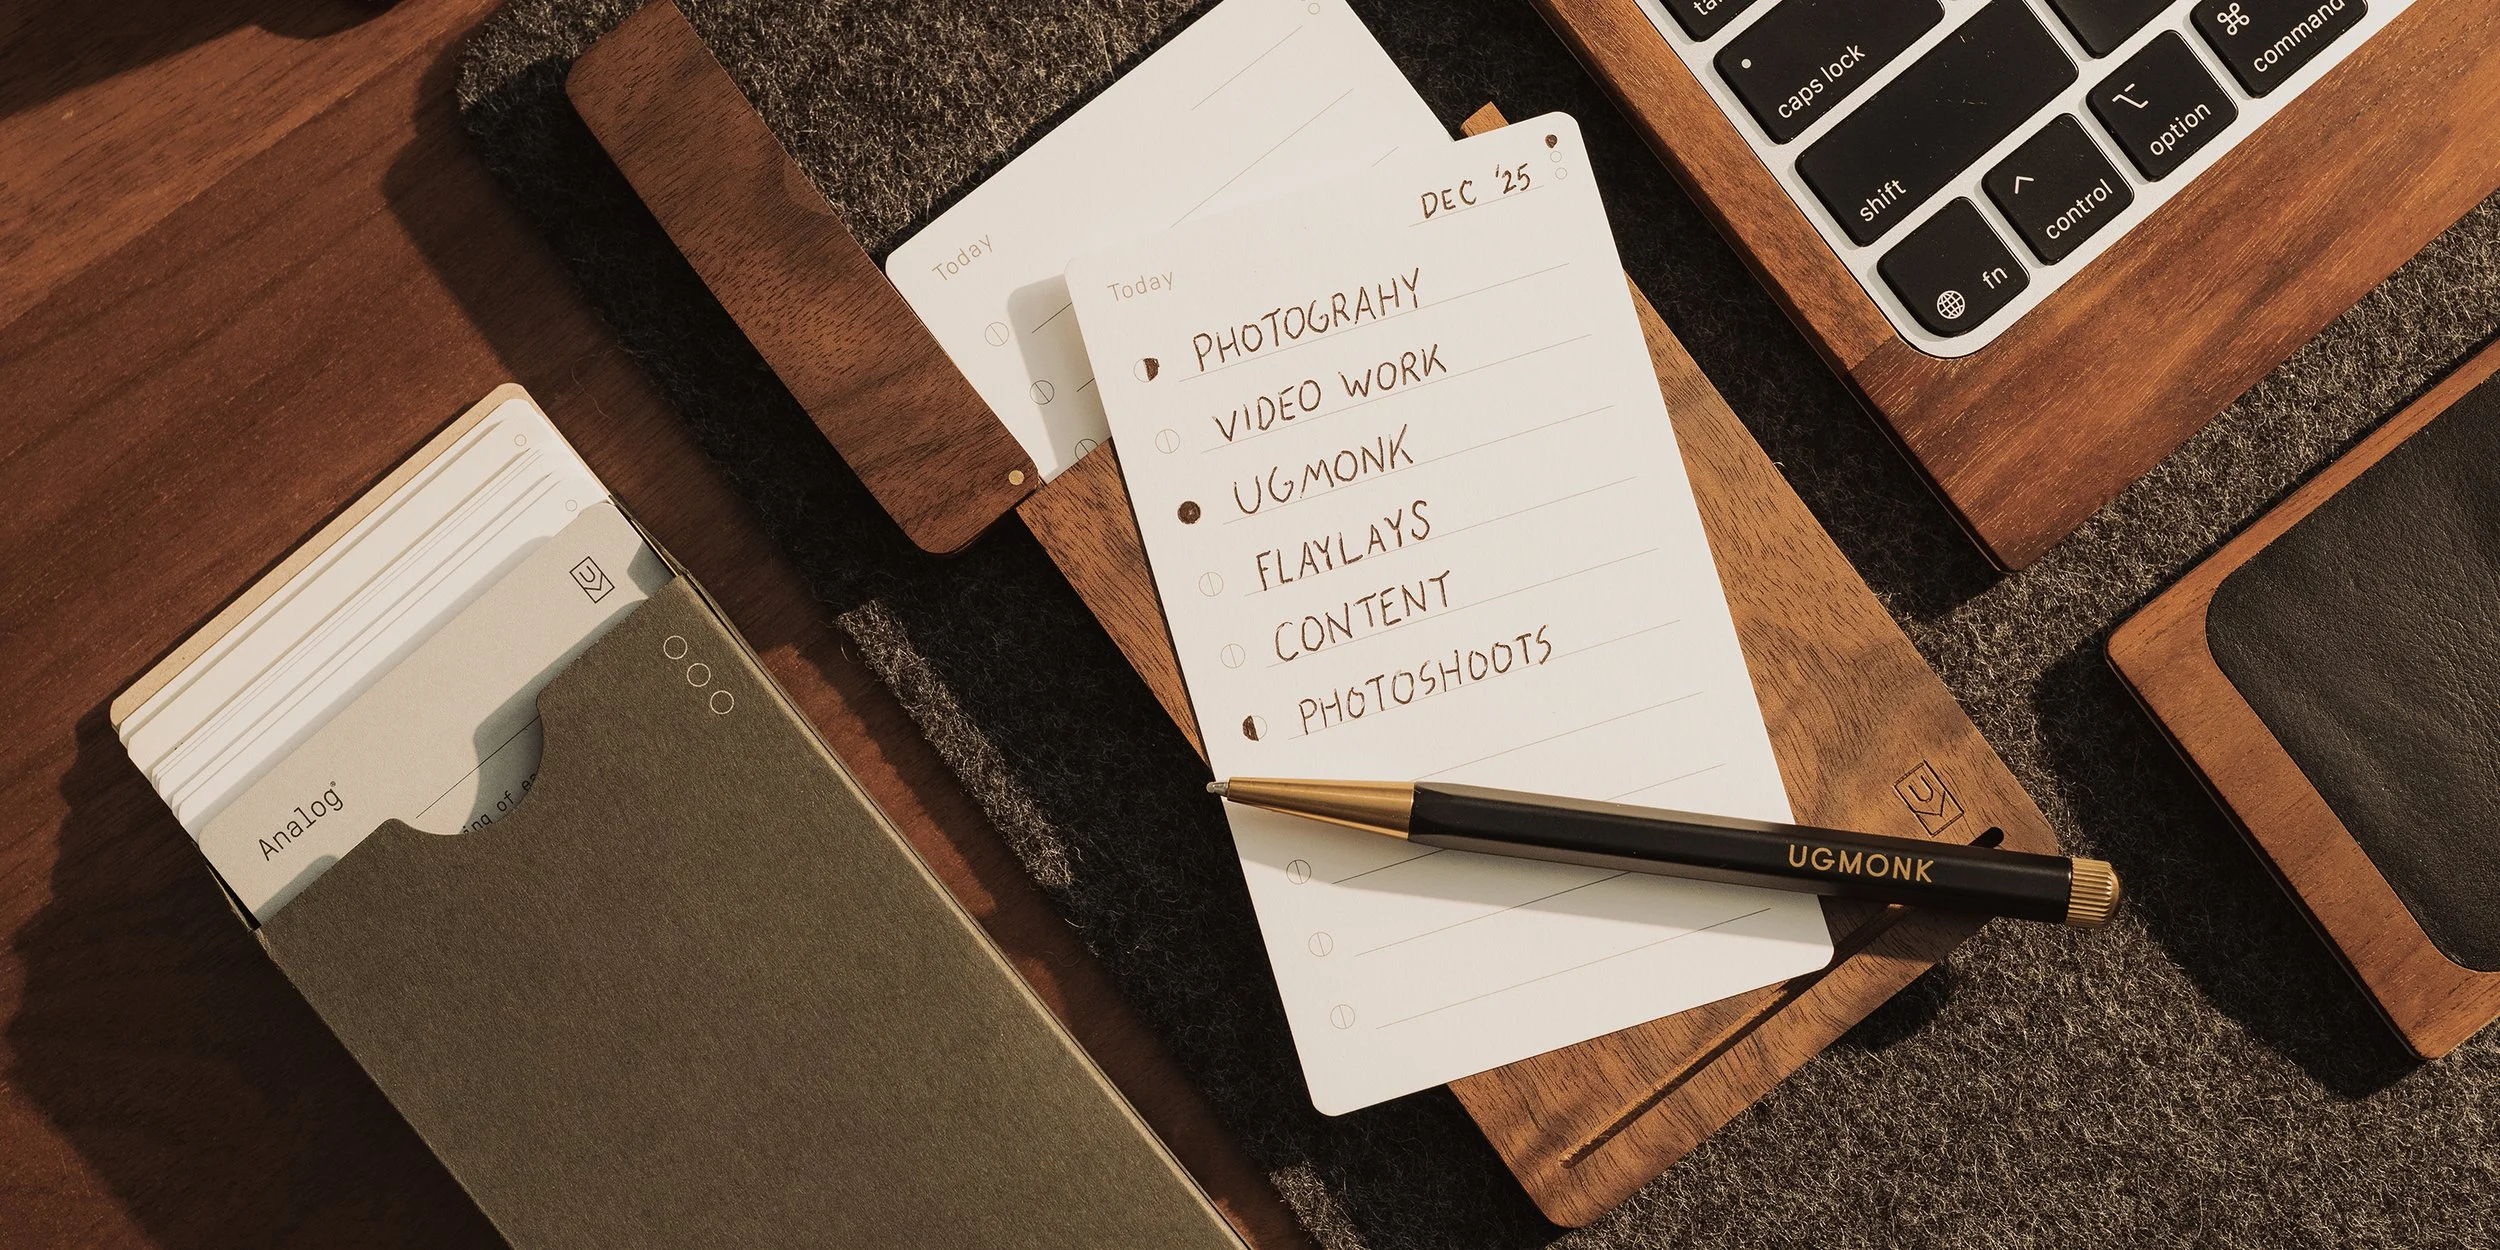 Today
DEC '25
Today
PHOTOGRAHY
VIDEO WORK
UGMONK
FLAYLAYS
CONTENT
PHOTOSHOOTS
UGMONK
Analog
ing of
caps lock
shift
fn
control
option
command